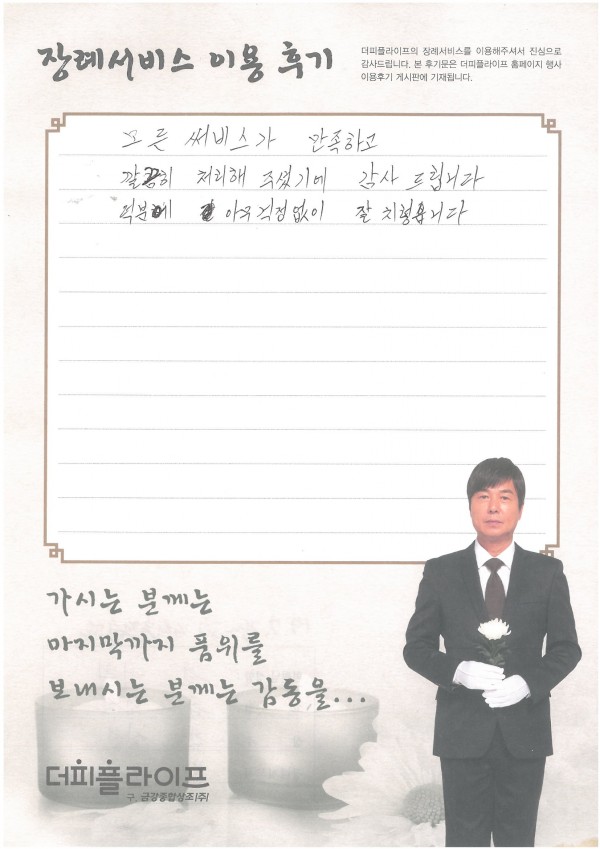 장례서비스 이용 후기
더피플라이프의 장례서비스를 이용해주셔서 진심으로
감사드립니다. 본 후기문은 더피플라이프 홈페이지 행사
이용후기 게시판에 기재됩니다.
모든 써비스가 만족하고
깔끔히 처리해 주셨기에 감사 드립니다
덕분에 아무걱정없이 잘
가시는 분께는
마지막까지 품위를
보내시는 분께는 감동을...
더피플라이프
구. 금강종합상조(주)